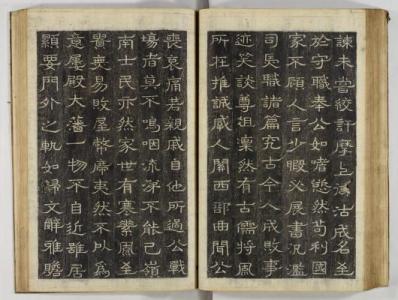 諫未嘗絞訐摩上為沽成名至
於守職奉公如嗜慾然苟利國
家不顧人言少暇必展書汎濫
司職篇究古今人成敗事
迹笑談尊俎凛然有古儒将風
所在推誠感人關西部曲聞公
喪哀痛若親戚自他所過公戰
場者莫不嗚咽流涕不能已嶺
南士民亦然家世有寒素風至
貴喪易敗屋幣席夷然不以為
意屢殿大藩一物不自近雖居
顯要門外之軌如歸文辭雅贍